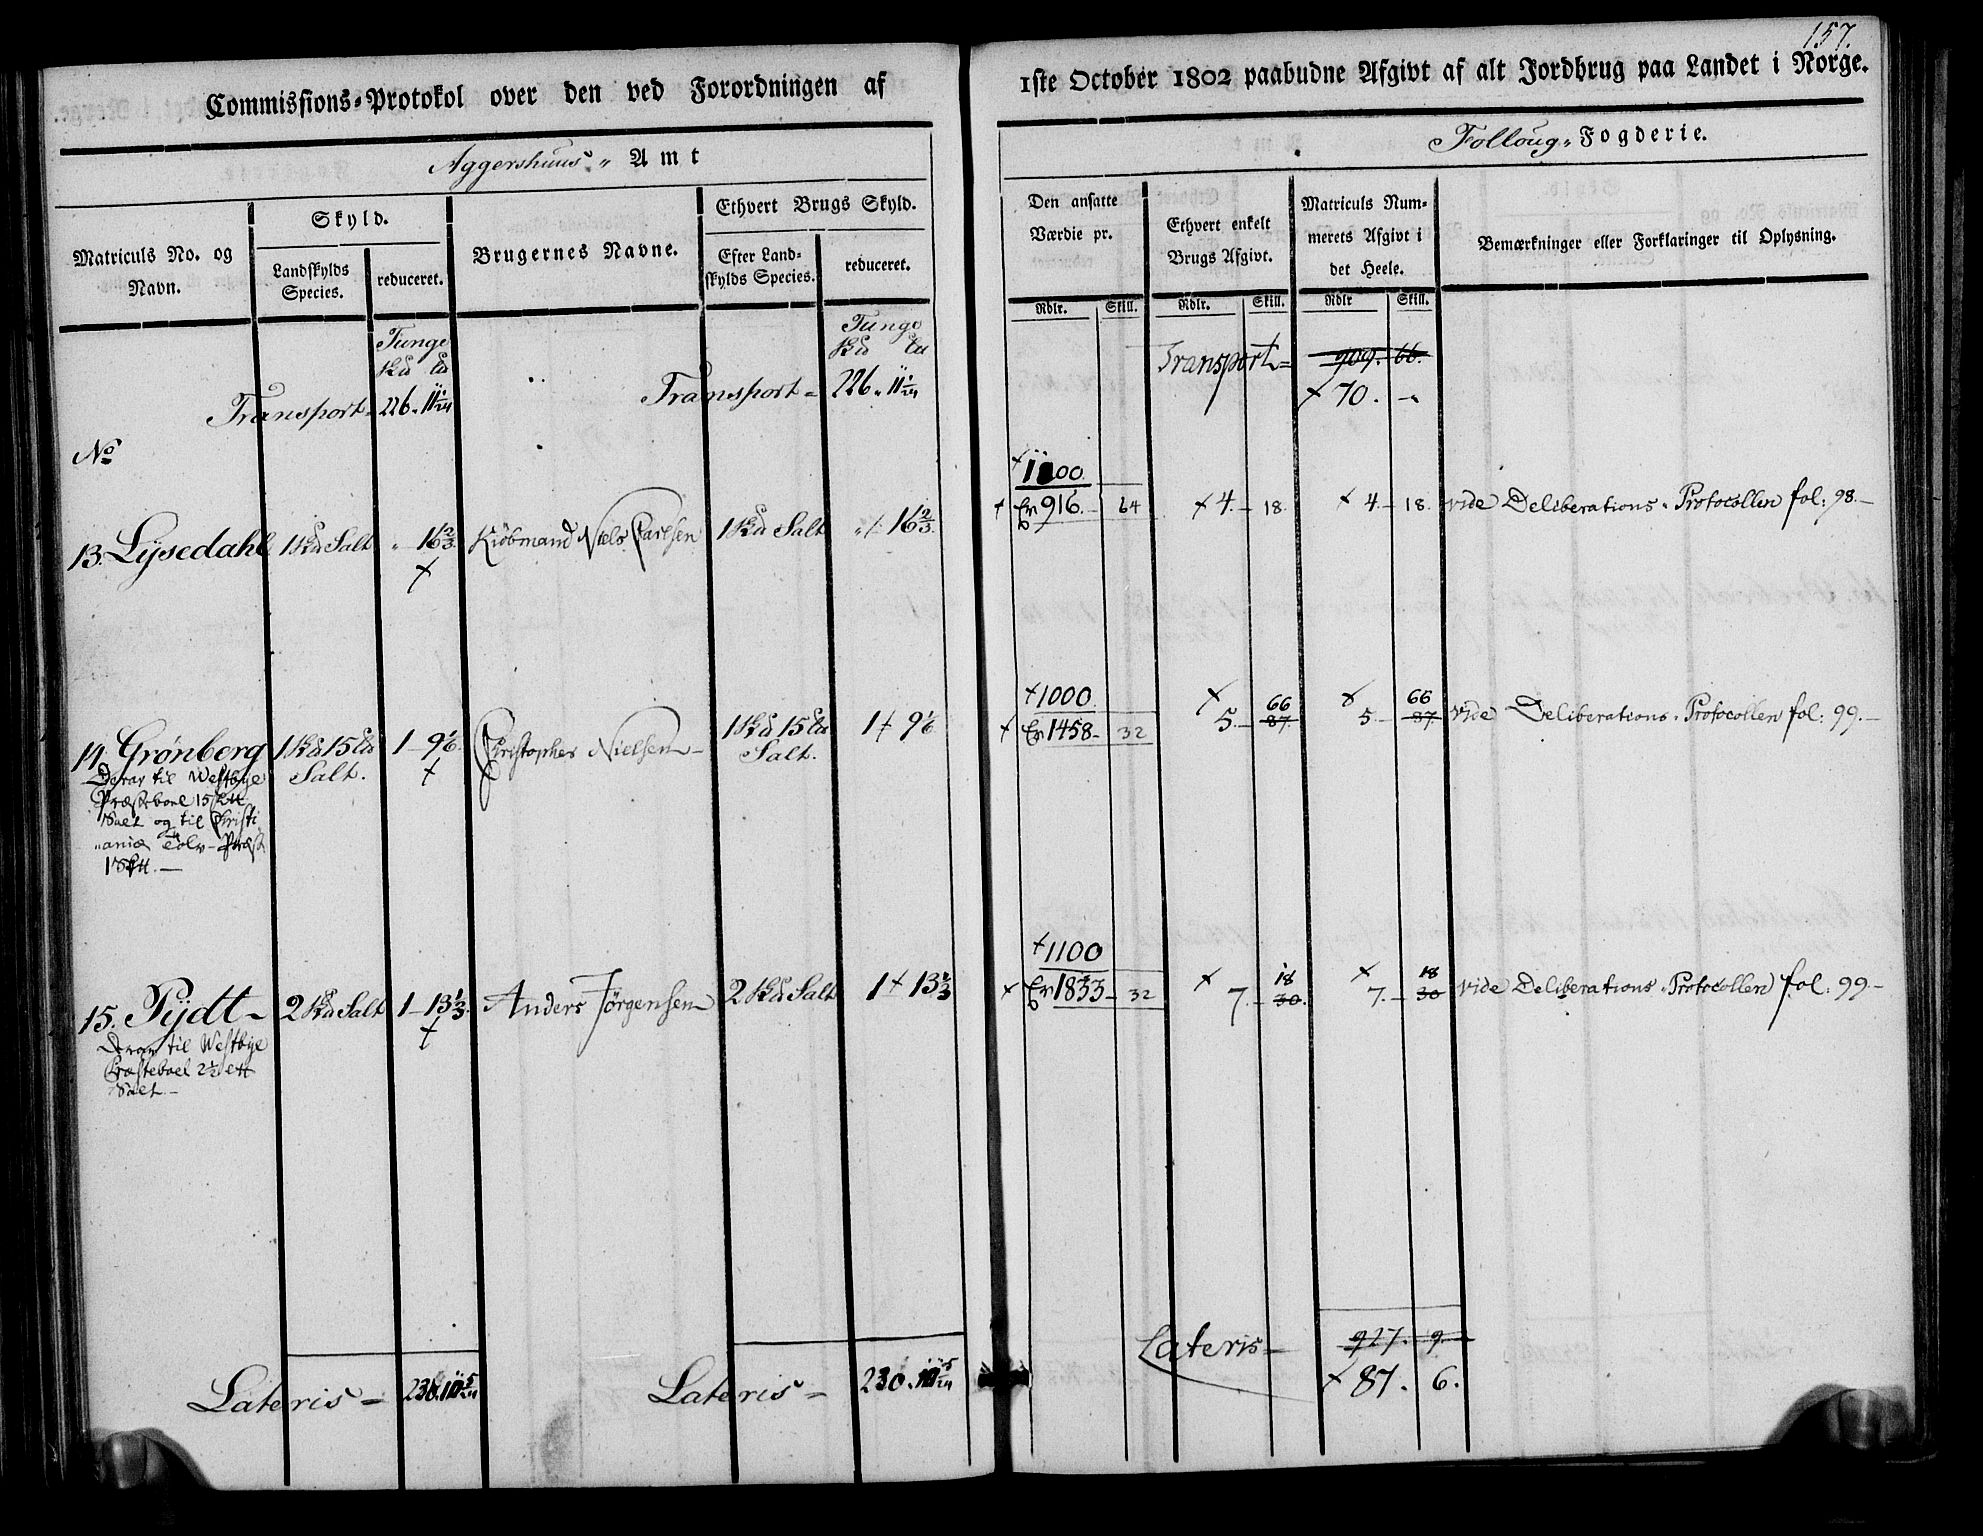 157.
Commissions-Protokol over den ved Forordningen af
1ste October 1802 paabudne Afgivt af alt Jordbrug paa Landet i Norge.
Aggershuus Amt
Folloug Fogderie.
Matriculs No. og Navn.
Skyld.
Landskylds Species.
reduceret.
Brugernes Navne.
Ethvert Brugs Skyld.
Efter Land-
skylds Species.
reduceret.
Den ansatte
Værdie pr.
Ethvert enkelt
Brugs Afgivt.
Matriculs Num-
merets Afgivt i
det Heele.
Bemærkninger eller Forklaringer til Oplysning.
Rdlr. Skill. Rdlr. Skill. Rdlr Skill.
Tunge Tunge
Transport 226. 11 1/24 Transport 226. 11 1/24 Transport 909. 66.
70. -
No
1100
13. Lysedahl 1 Salt 16 2/3. Kiöbmand Niels Carlsen 1 Salt 16 2/3. 916. 64 4. 18. 4. 18. vide Deliberations Protocollen fol: 98.
1000 66 66
14. Grønberg 1 15 1 9 1/6. Christopher Nielsen 1 15 1 9 1/6 1458 32 5. 87. 5. 87 vide Deliberations Protocollen fol: 99.
Salt. Salt.
Derav til Westbye
Præsteboel 15
Salt og til Christi
aniæ Præst
1
1100 18 18
15. Pydt 2 Salt 1 13 1/3. Anders Jörgensen 2 Salt 1 13 1/3 1833 32 7. 30. 7. 30 vide Deliberations Protocollen fol: 99
Derav til Westbye
Præsteboel 2 1/2
Salt
Lateris 230. 5/24 Lateris 230. 5/24 Lateris 927. 9.
87. 6.